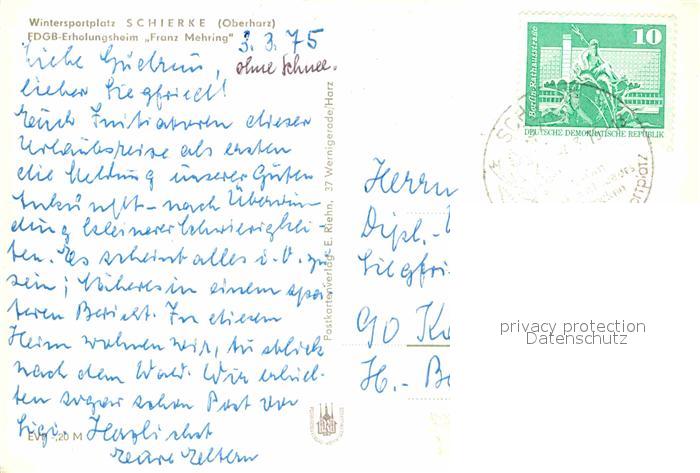 Wintersportplatz SCHIERKE (Oberharz)
FDGB-Erholungsheim „Franz Mehring"
3. 3. 75
ohne Schnee.
Liebe Gudrun,
lieber Siegfried!
Euch Initiatoren dieser
Urlaubsreise als ersten
die Meldung unserer guten
Ankunft - nach Überwin-
dung kleinerer Schwierigkei-
ten. Es scheint alles i. O. zu
sein; Näheres in einem spä-
teren Bericht. In diesem
Heim wohnen wir, Ausblick
nach dem Wald. Wir erhiel-
ten sogar schon Post von
Sigi. Herzlichst
Eure Eltern
EVP -,20 M
Postkartenverlag E. Riehn, 37 Wernigerode/Harz
10
Berlin Rathausstraße
DEUTSCHE DEMOKRATISCHE REPUBLIK
Herrn
Dipl.-
Siegfri
90 K
H.- B
privacy protection
Datenschutz